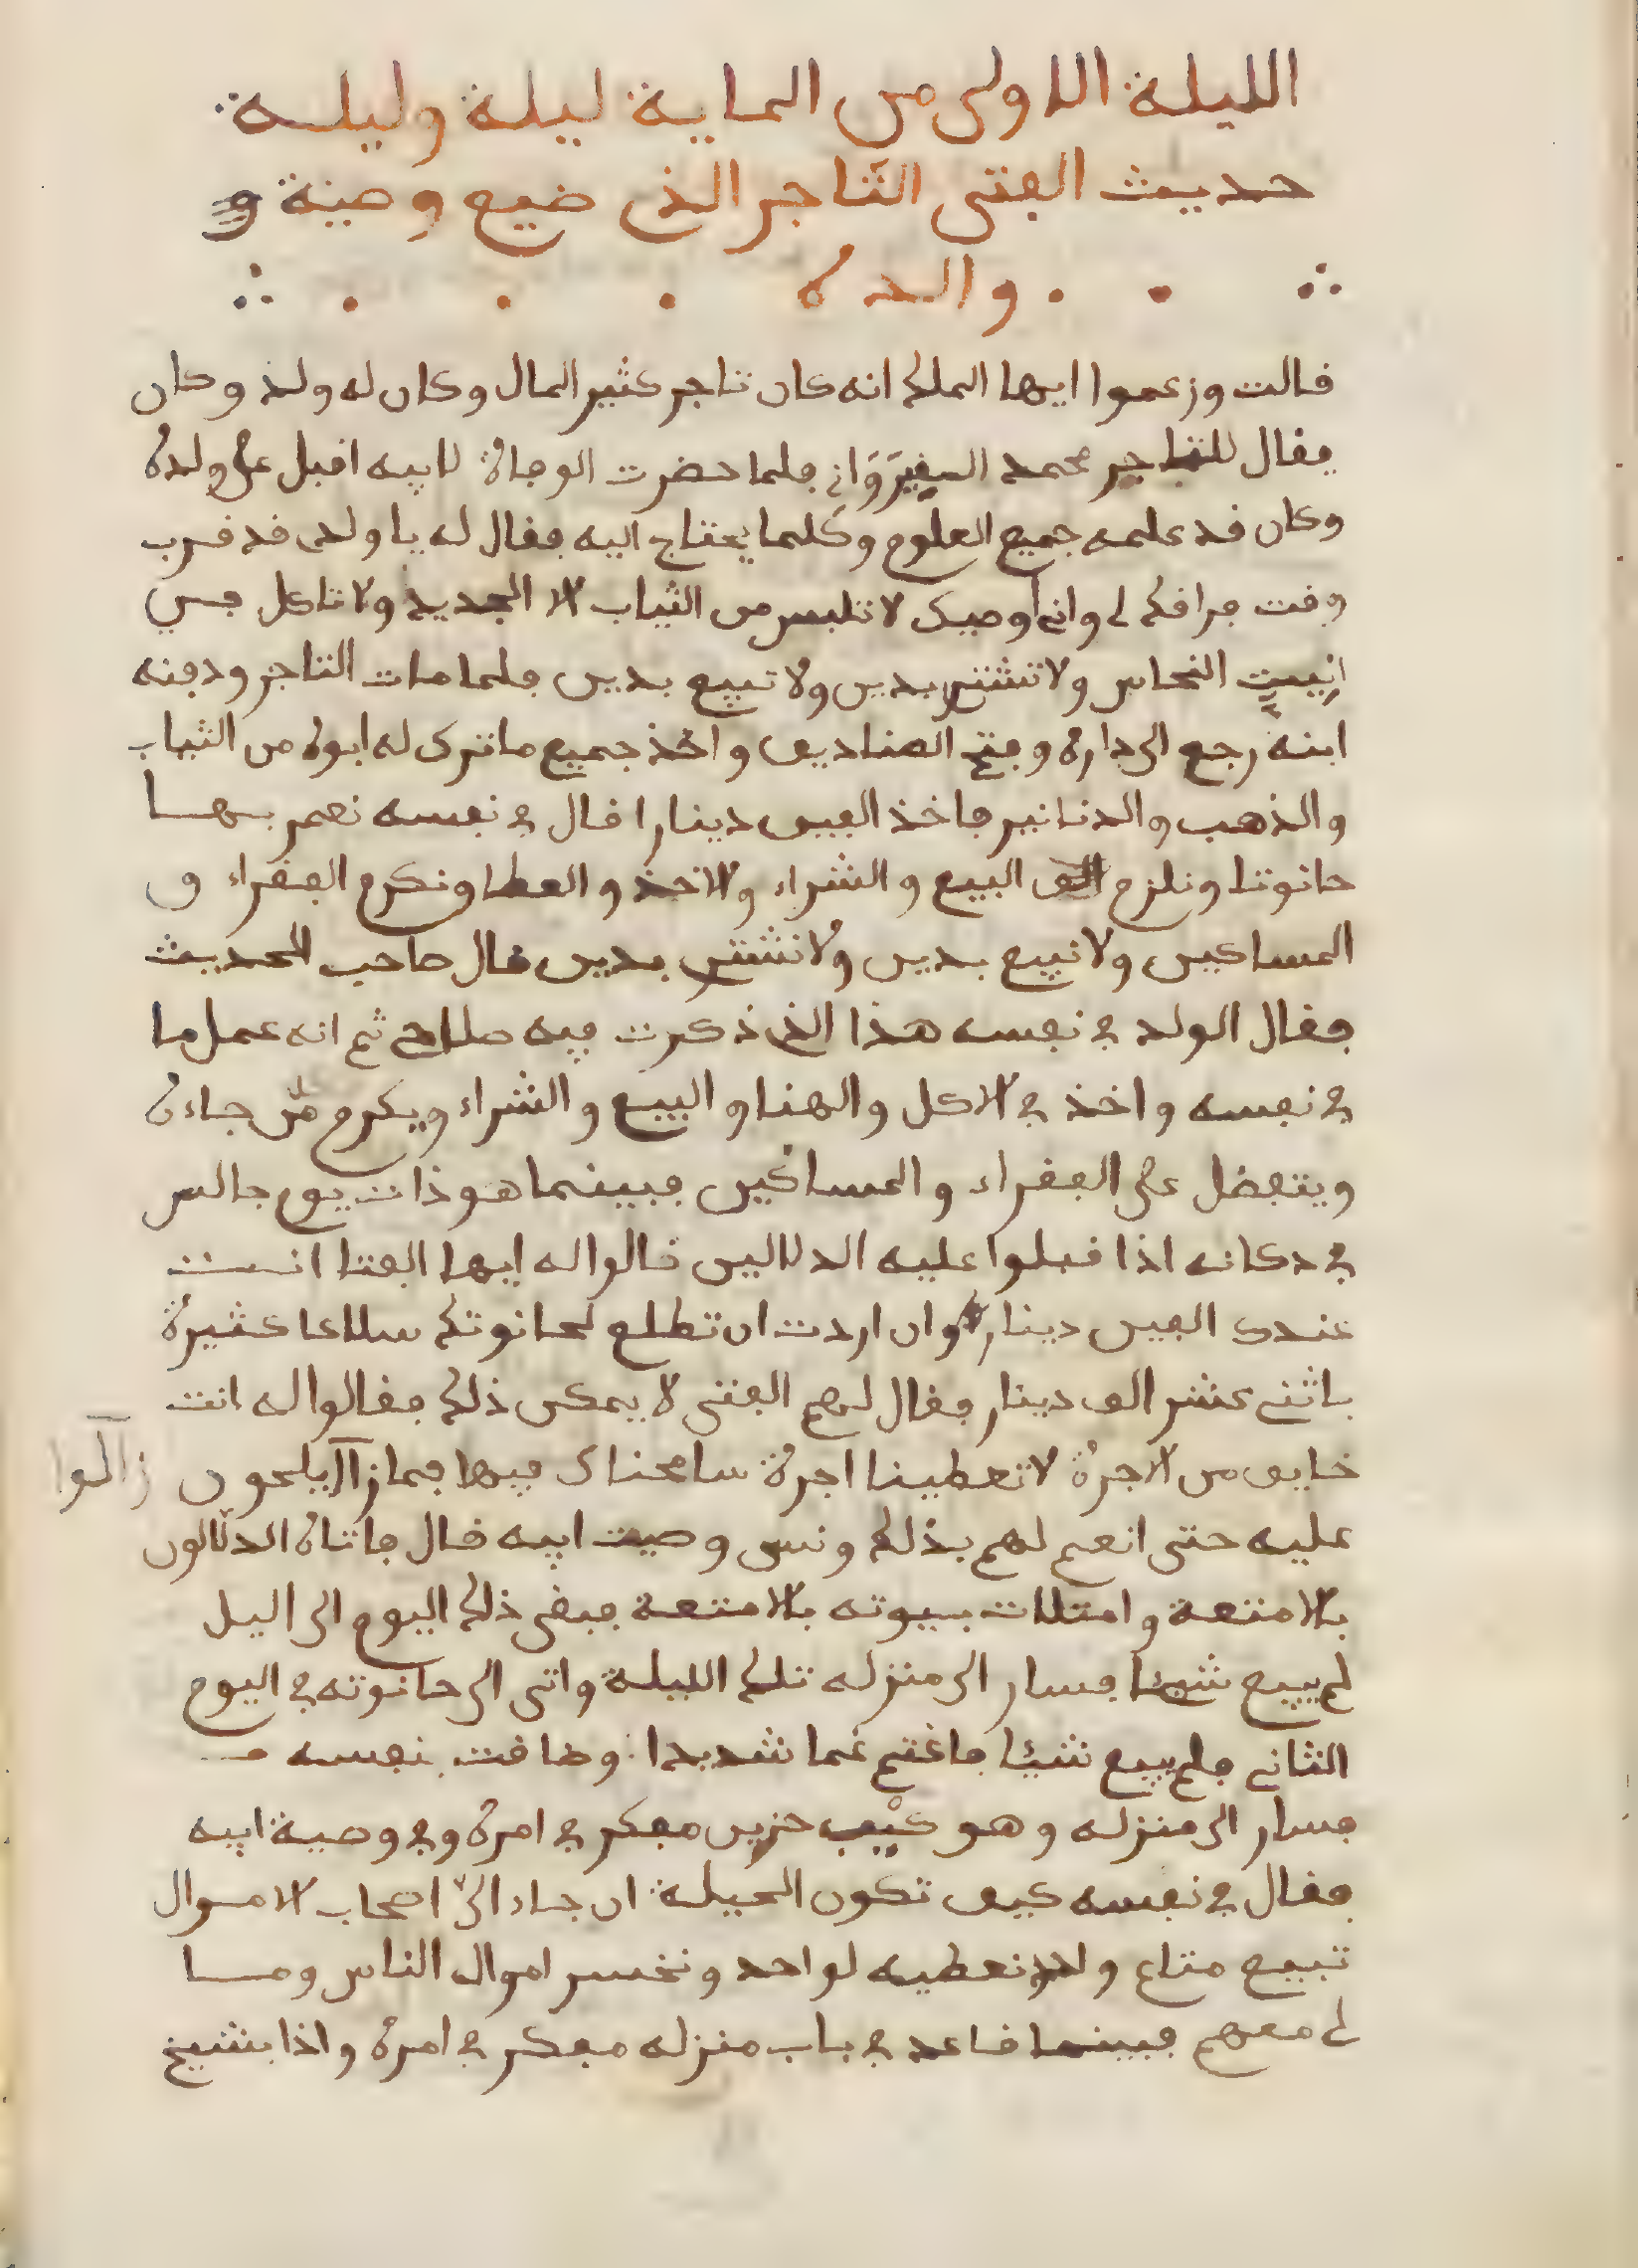 الليلة الاولى من الماية ليلة وليلة
حديث الفتى التاجر الذي ضيع وصية و
والده
قالت وزعموا ايها الملك انه كان تاجر كثير المال وكان له ولد وكان
يقال للتاجر محمد القيرواني فلما حضرت الوفاة لابيه اقبل على ولده
وكان قد علمه جميع العلوم وكلما يحتاج اليه فقال له يا ولدي قد قرب
وقت فراقك لي واني اوصيك لا تلبس من الثياب الا الجديد ولا تاكل في
انيت النحاس ولا تشتر بدين ولا تبيع بدين فلما مات التاجر ودفنه
ابنه رجع الى داره وفتح الصناديق واخذ جميع ما ترك له ابوه من الثياب
والذهب والدنانير فاخذ الفين دينارا قال في نفسه نعمر بها
حانوتنا ونلزم البيع والشراء والاخذ والعطا ونكرم الفقراء و
المساكين ولا نبيع بدين ولا نشتر بدين قال صاحب الحديث
فقال الولد في نفسه هذا الذي ذكرت فيه صلاح ثم انه عمل ما
في نفسه واخذ في الاكل والهنا والبيع والشراء ويكرم من جاءه
ويتفضل على الفقراء والمساكين فبينما هو ذات يوم جالس
في دكانه اذا قبلوا عليه الدلالين قالوا له ايها الفتا انت
عندك الفين دينار وان اردت ان تطلع لحانوتك سلاعا كثيرة
باثني عشر الف دينار فقال لهم الفتى لا يمكن ذلك فقالوا له انت
خايف من الاجرة لا تعطينا اجرة سامحناك فيها فما زالا يلحون زالوا
عليه حتى انعم لهم بذلك ونسي وصيت ابيه قال فاتاه الدلالون
بالامتعة وامتلات بيوته بالامتعة فبقى ذلك اليوم الى اليل
لم يبيع شيئا فسار الى منزله تلك الليلة واتى الى حانوته في اليوم
الثاني فلم يبيع شيئا فاغتم غما شديدا وضاقت نفسه
فسار الى منزله وهو كيب حزين مفكر في امره وفي وصية ابيه
فقال في نفسه كيف تكون الحيلة ان جاء الي اصحاب الاموال
تبيع متاع واحد نعطيه لواحد ونخسر اموال الناس وما
لي معهم فبينما قاعد في باب منزله مفكر في امره واذا بشيخ